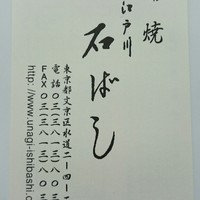 焼
江戸川
石ばし
東京都文京区水道二ー四ー
電話〇三(三八一三)八〇
FAX〇三(三八一三)八〇
http://www.unagi-ishibashi.c